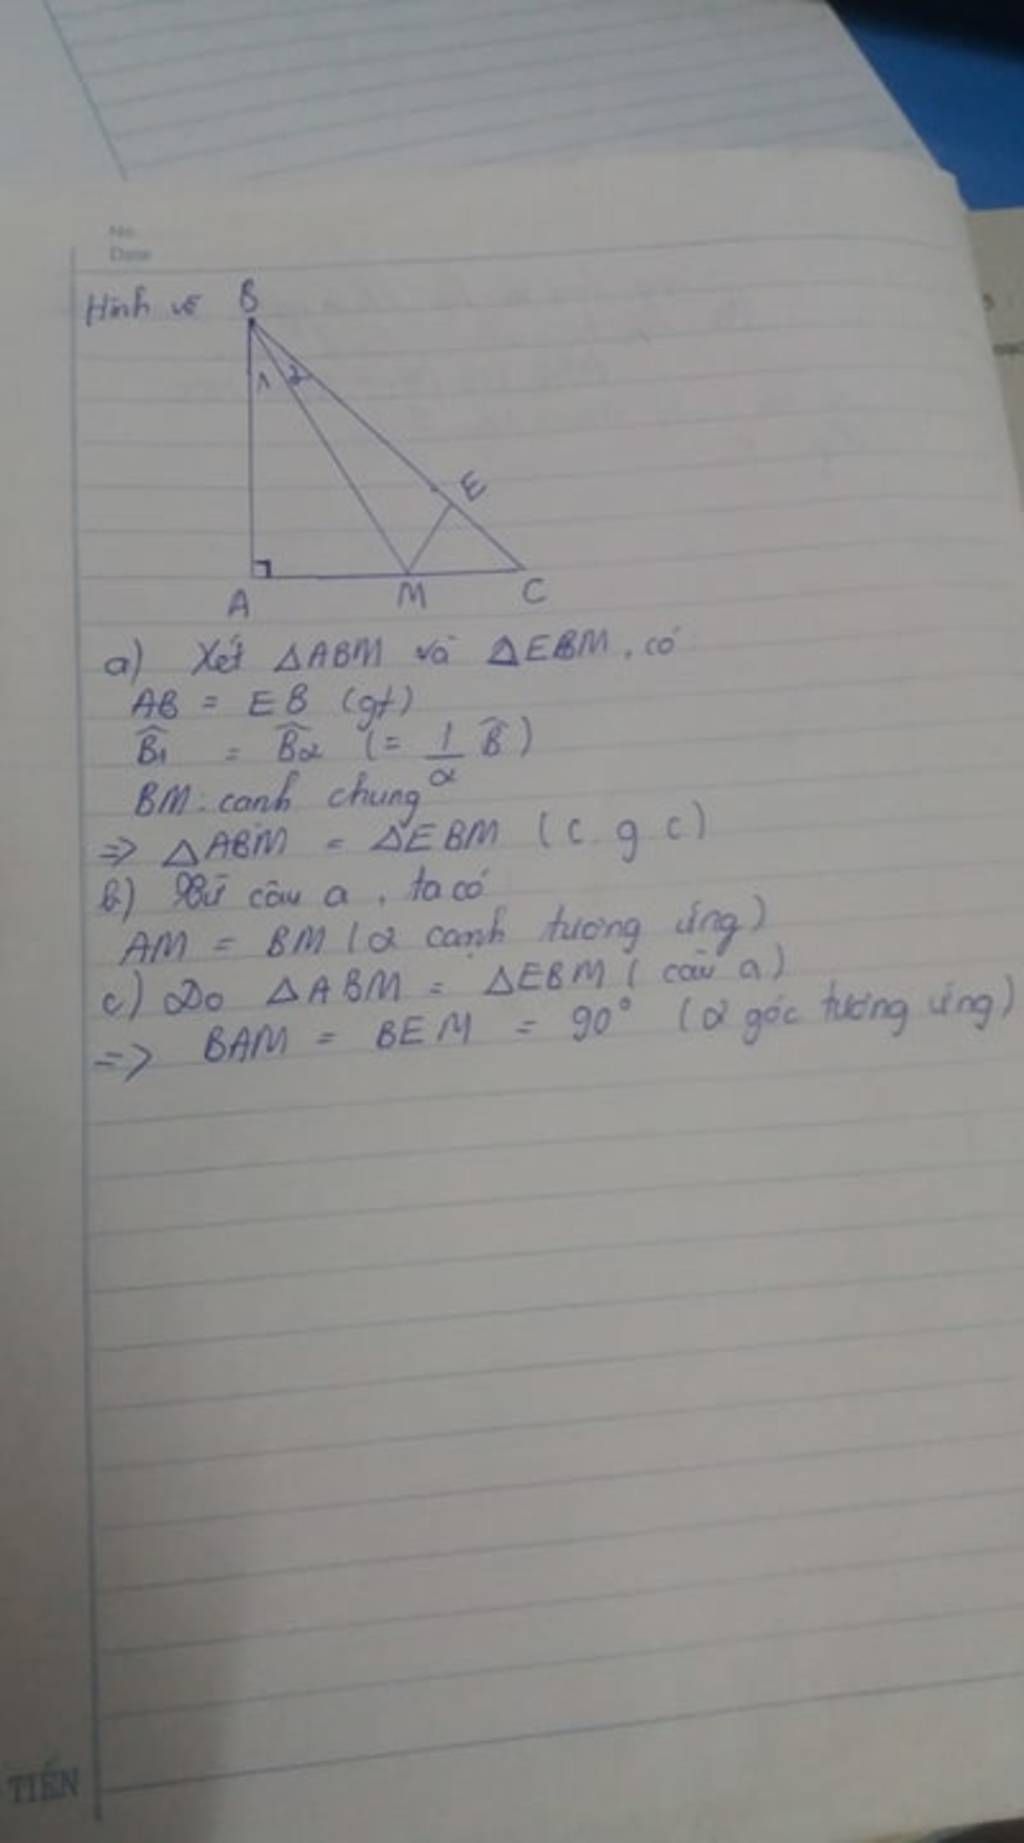 No.
Date
Hình vẽ B
1 2
E
A M C
a) Xét ΔABM và ΔEBM, có
AB = EB (gt)
B̂1 = B̂2 (= 1/2 B̂)
BM: cạnh chung
=> ΔABM = ΔEBM (c g c)
b) Từ câu a, ta có
AM = BM (2 cạnh tương ứng)
c) Do ΔABM = ΔEBM (câu a)
=> BAM = BEM = 90° (2 góc tương ứng)
TIẾN